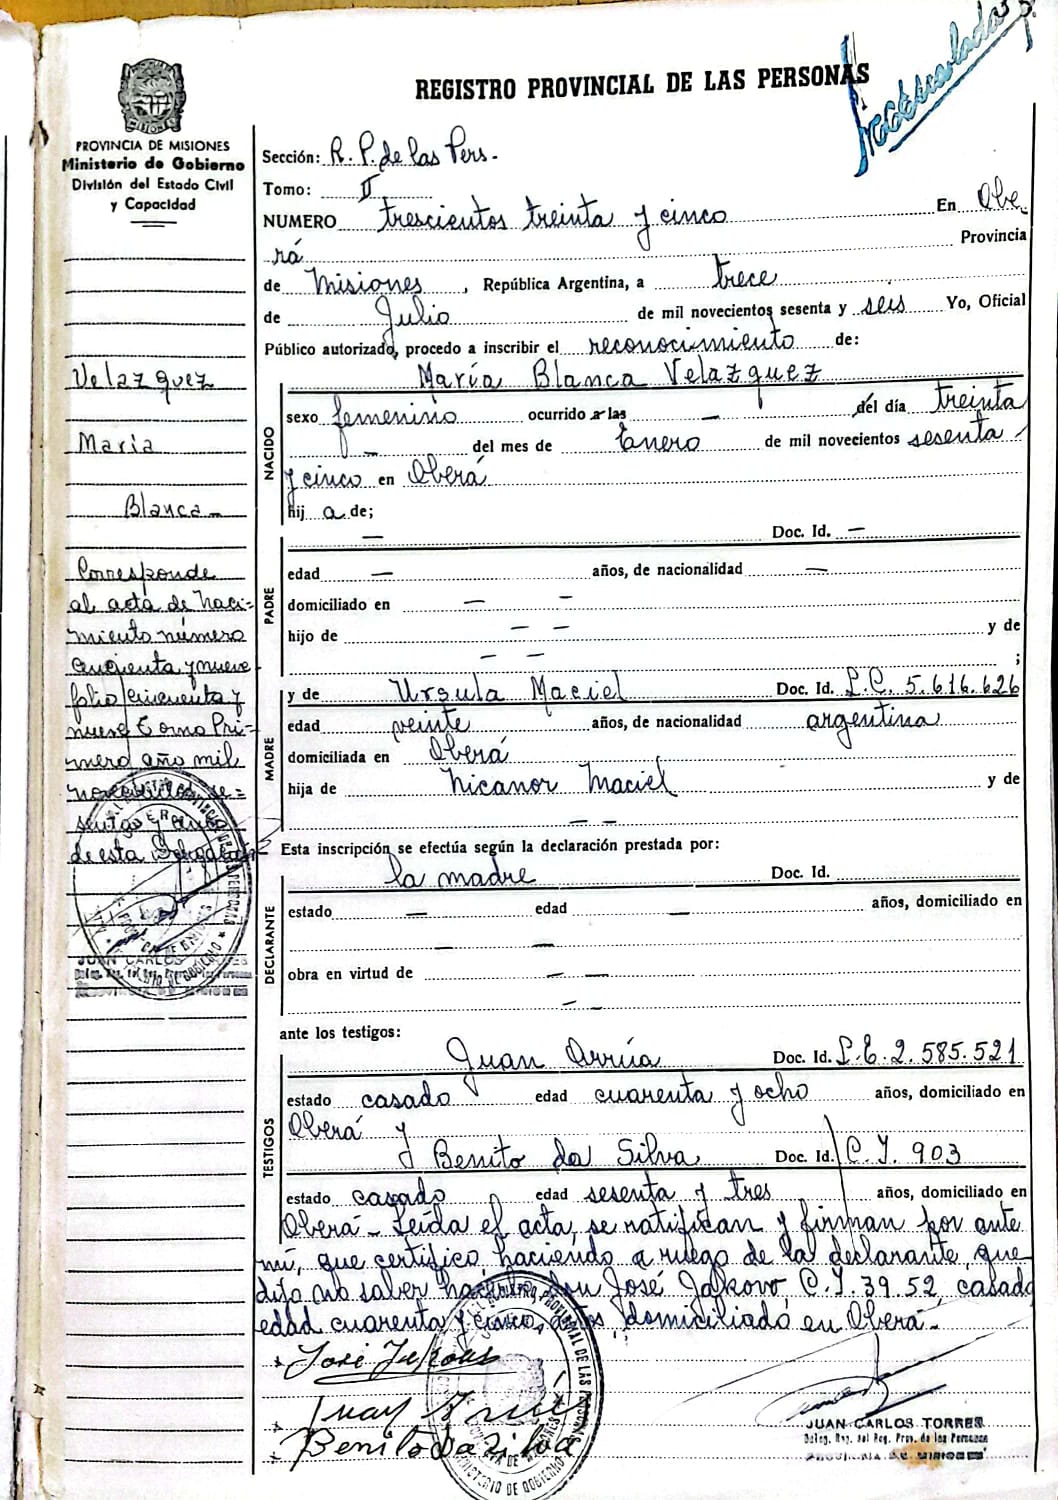 REGISTRO PROVINCIAL DE LAS PERSONAS
PROVINCIA DE MISIONES
Ministerio de Gobierno
División del Estado Civil
y Capacidad
Velazquez
María
Blanca -
Corresponde
al acta de naci-
miento número
cincuenta y nueve
folio cincuenta y
nueve Tomo Pri-
mero año mil
novecientos se-
senta y cinco
de esta
JUAN CARLOS
Sección: R. P. de las Pers.
Tomo: II
NUMERO trescientos treinta y cinco En Obe
rá Provincia
de Misiones, República Argentina, a trece
de Julio de mil novecientos sesenta y seis Yo, Oficial
Público autorizado, procedo a inscribir el reconocimiento de:
María Blanca Velazquez
NACIDO
sexo femenino ocurrido a las — del día treinta
— del mes de Enero de mil novecientos sesenta
y cinco en Oberá
hij a de;
PADRE
— Doc. Id. —
edad — años, de nacionalidad —
domiciliado en — —
hijo de — — y de
— — ;
MADRE
y de Ursula Maciel Doc. Id. L.C. 5.616.626
edad veinte años, de nacionalidad argentina
domiciliada en Oberá
hija de Nicanor Maciel y de
— —
Esta inscripción se efectúa según la declaración prestada por:
DECLARANTE
la madre Doc. Id.
estado — edad — años, domiciliado en
— —
obra en virtud de — —
— —
ante los testigos:
TESTIGOS
Juan Arrúa Doc. Id. L.E. 2.585.521
estado casado edad cuarenta y ocho años, domiciliado en
Oberá y
Benito da Silva Doc. Id. C.I. 903
estado casado edad sesenta y tres años, domiciliado en
Oberá - Leída el acta, se ratifican y firman por ante
mí, que certifico, haciendo a ruego de la declarante que
dijo no saber hacerlo, don José Jakovo, C.I. 39.52, casado
edad cuarenta y cinco años, domiciliado en Oberá -
Benito da Silva
JUAN CARLOS TORRES
Deleg. Reg. del Reg. Prov. de las Personas
PROVINCIA DE MISIONES